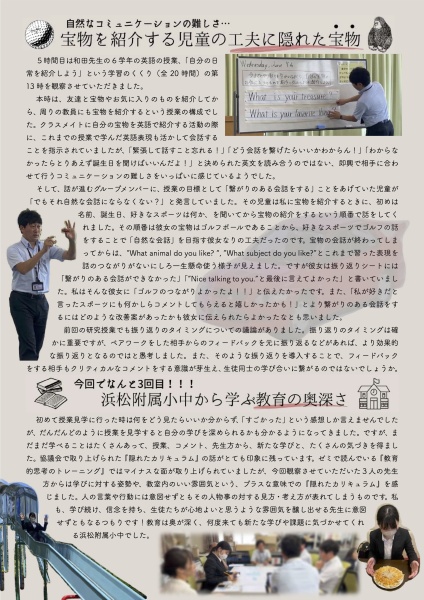 自然なコミュニケーションの難しさ…
宝物を紹介する児童の工夫に隠れた宝物
５時間目は和田先生の６学年の英語の授業、「自分の日
常を紹介しよう」という学習のくくり（全 20 時間）の第
13 時を観察させていただきました。
本時は、友達と宝物やお気に入りのものを紹介してか
ら、周りの教員にも宝物を紹介するという授業の構成でし
た。クラスメイトに自分の宝物を英語で紹介する活動の際
に、これまでの授業で学んだ英語表現も活かして会話する
What is your treasure?
What is your favorite
ことを指示されていましたが、「緊張して話すこと忘れる！」「どう会話を繋げたらいいかわからん！」「わからな
かったらとりあえず誕生日を聞けばいいんだよ！」と決められた英文を読み合うのではない、即興で相手に合わ
せて行うコミュニケーションの難しさをいっぱいに感じているようでした。
そして、話が進むグループメンバーに、授業の目標として「繋がりのある会話をする」ことをあげていた児童が
「でもそれ自然な会話にならなくない？」と発言していました。その児童は私に宝物を紹介するときに、初めは
名前、誕生日、好きなスポーツは何か、を聞いてから宝物の紹介をするという順番で話をしてく
れました。その順番は彼女の宝物はゴルフボールであることから、好きなスポーツでゴルフの話
をすることで「自然な会話」を目指す彼女なりの工夫だったのです。宝物の会話が終わってしま
ってからは、"What animal do you like? ", "What subject do you like?"とこれまで習った表現を
話のつながりがないにしろ一生懸命使う様子が見えました。ですが彼女は振り返りシートには
「繋がりのある会話ができなかった」「"Nice talking to you."と最後に言えてよかった」と書いていまし
た。私はそんな彼女に「ゴルフのつながりよかったよ！！」と伝えたかったです。また、「私が好きだと
言ったスポーツにも何かしらコメントしてもらえると嬉しかったかも！」とより繋がりのある会話をす
るにはどのような改善案があったかも彼女に伝えられたらよかったなとも思いました。
前回の研究授業でも振り返りのタイミングについての議論がありました。振り返りのタイミングは確
かに重要ですが、ペアワークをした相手からのフィードバックを元に振り返るなどがあれば、より効果的
な振り返りとなるのではと愚考しました。また、そのような振り返りを導入することで、フィードバック
をする相手もクリティカルなコメントをする意識が芽生え、生徒同士の学び合いに繋がるのではないでしょうか。
今回でなんと3回目！！！
浜松附属小中から学ぶ教育の奥深さ
初めて授業見学に行った時は何をどう見たらいいか分からず、「すごかった」という感想しか言えませんでし
たが、だんだんどのように授業を見学すると自分の学びを深められるかも分かるようになってきました。ですが、ま
だまだ学べることはたくさんあって、授業、コメント、先生方から、新たな学びと、たくさんの気づきを得まし
た。協議会で取り上げられた『隠れたカリキュラム』の話がとても印象に残っています。ゼミで読んでいる『教育
的思考のトレーニング』ではマイナスな面が取り上げられていましたが、今回観察させていただいた３人の先生
方からは学びに対する姿勢や、教室内のいい雰囲気という、プラスな意味での『隠れたカリキュラム』を感
じました。人の言葉や行動には意図せずともその人物事の対する見方・考え方が表れてしまうものです。私
も、学び続け、信念を持ち、生徒たちが心地よいと思うような雰囲気を醸し出せる先生に意図
せずともなるつもりです！教育は奥が深く、何度来ても新たな学びや課題に気づかせてくれ
る浜松附属小中でした。